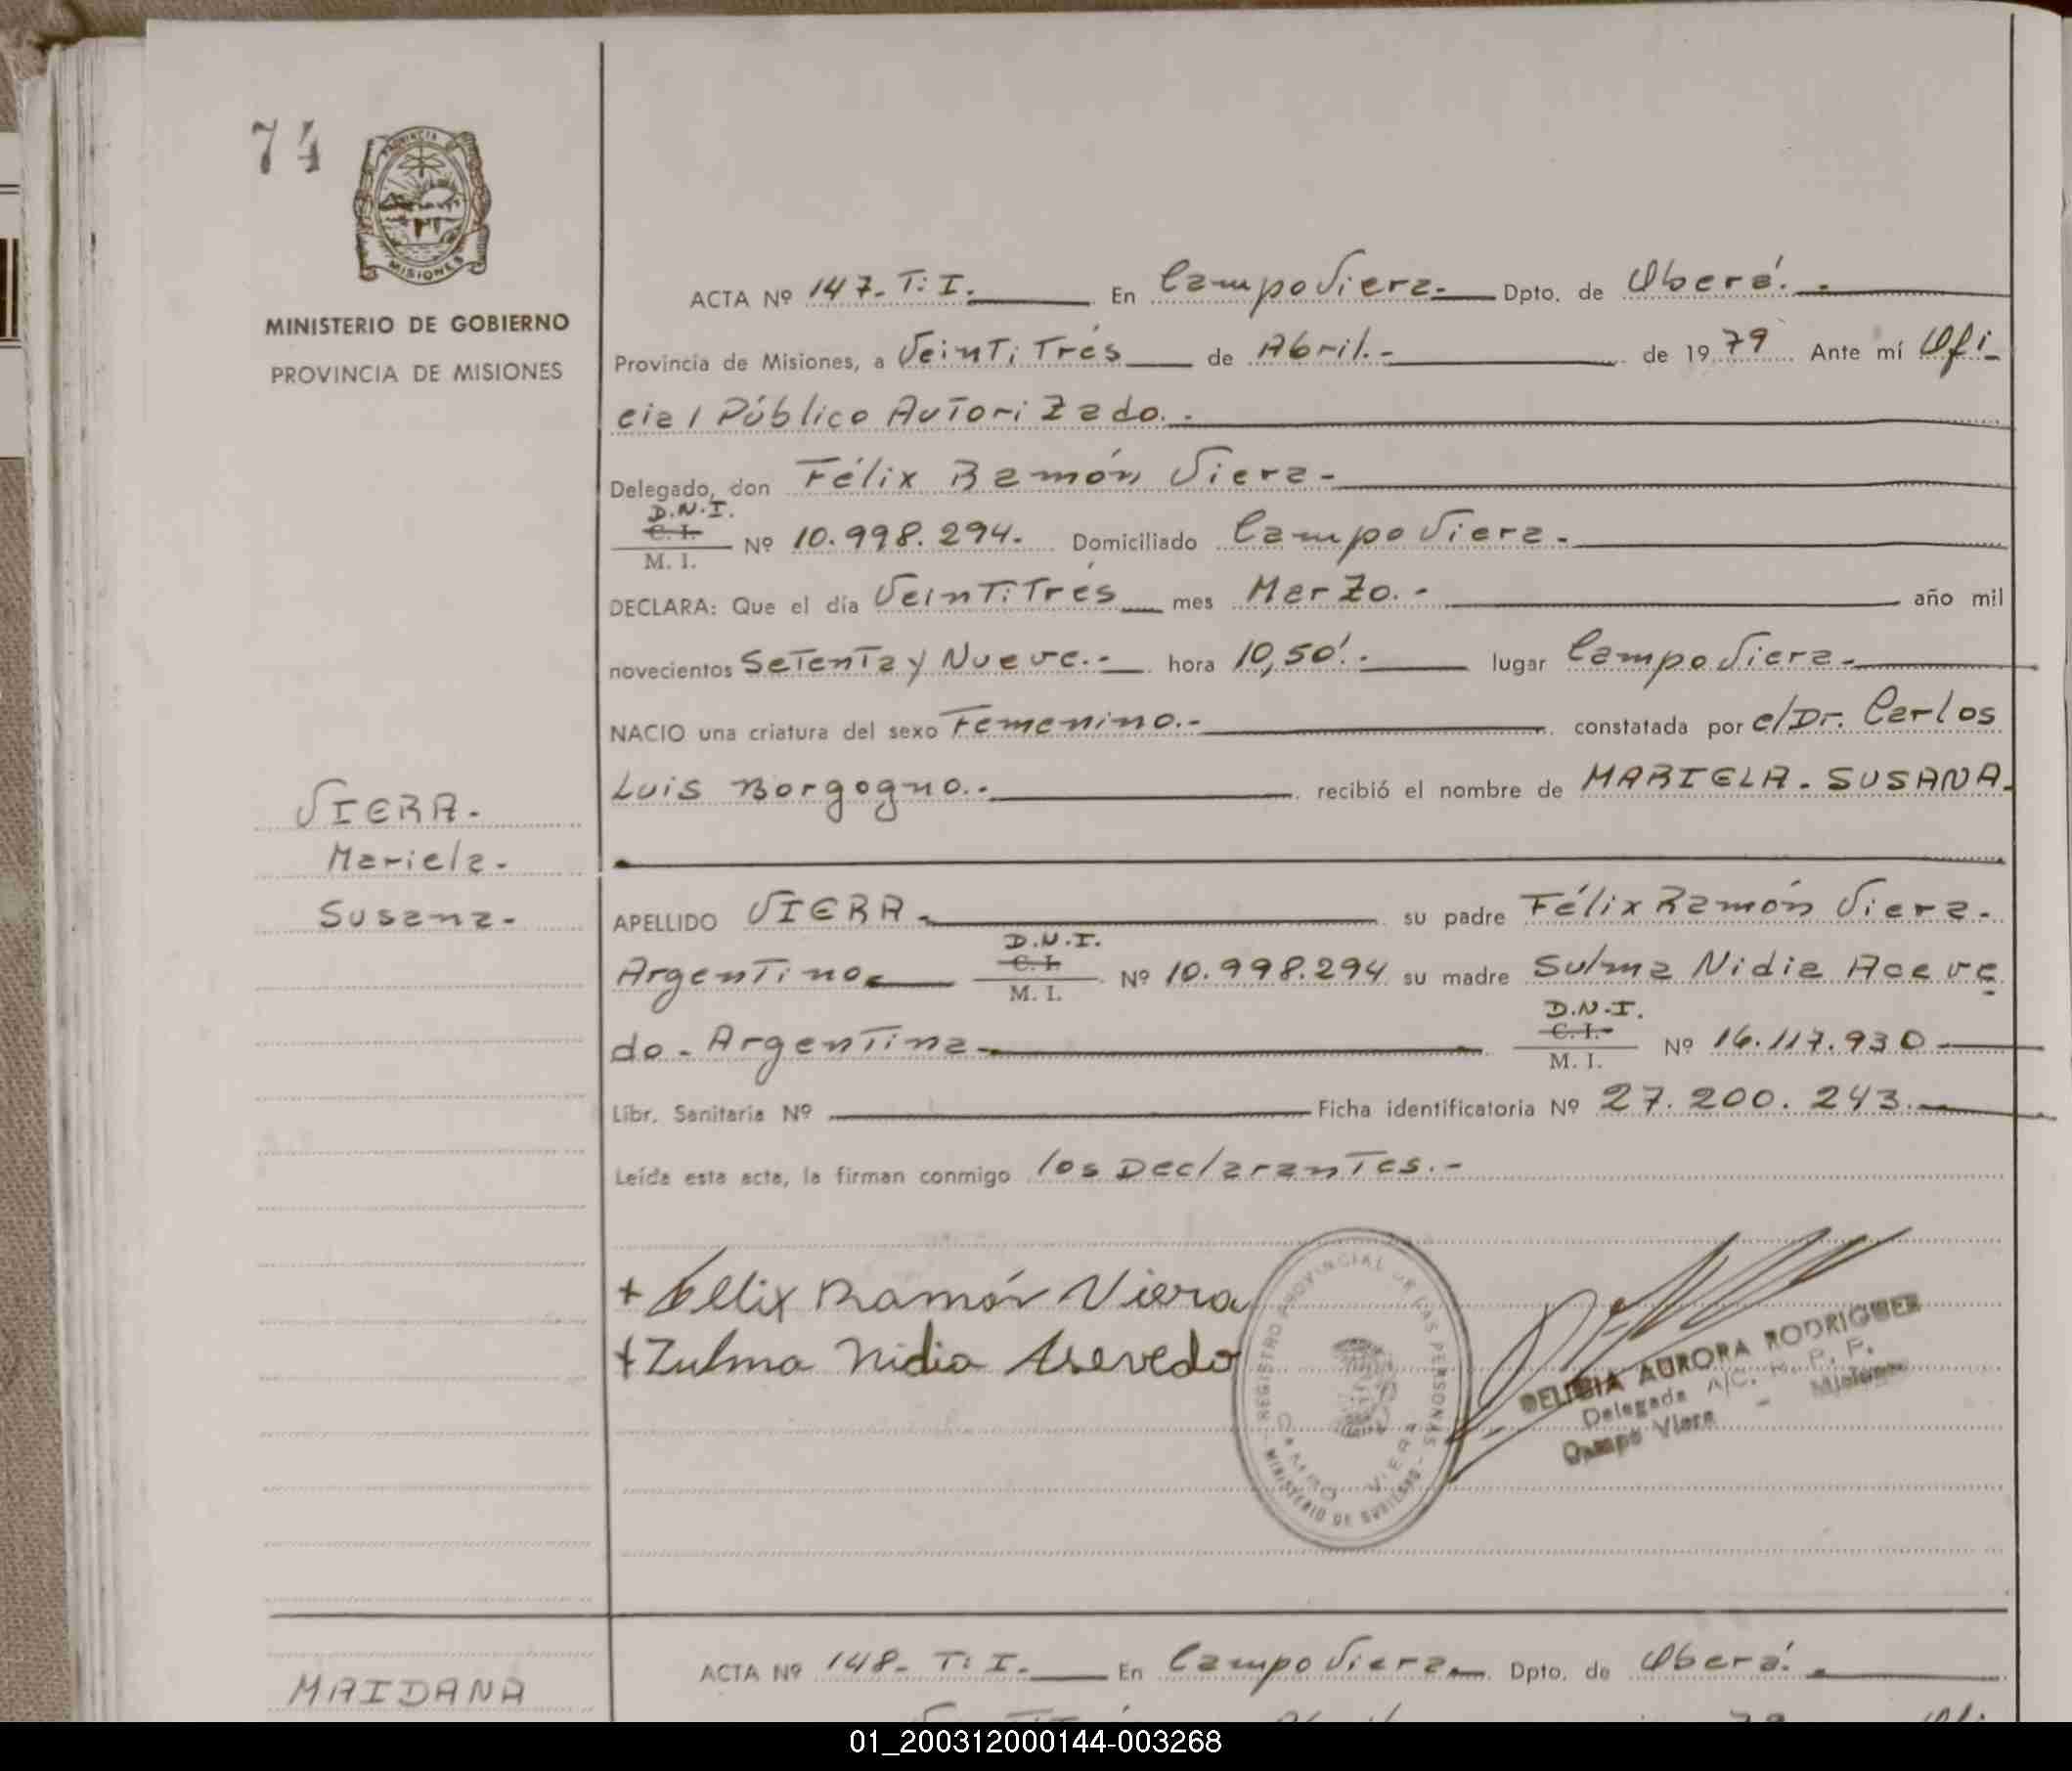 74
PROVINCIA DE
MISIONES
MINISTERIO DE GOBIERNO
PROVINCIA DE MISIONES
ACTA Nº 147-T:I. En Campo Viera.- Dpto. de Oberá.-
Provincia de Misiones, a VeintiTrés de Abril.- de 1979 Ante mí Ofi-
cial Público Autorizado.-
Delegado, don Félix Ramón Viera-
D.N.I.
C. I.
M. I.
Nº 10.998.294. Domiciliado Campo Viera.
DECLARA: Que el día VeintiTrés mes Marzo.- año mil
novecientos Setenta y Nueve.- hora 10,50'.- lugar Campo Viera-
NACIO una criatura del sexo Femenino.- constatada por c/Dr. Carlos
Luis Borgogno.- recibió el nombre de MARIELA-SUSANA.
VIERA-
Mariela-
Susana-
APELLIDO VIERA- su padre Félix Ramón Viera-
D.N.I.
Argentino- C. I. M. I. Nº 10.998.294 su madre Sulma Nidia Aceve
D.N.I.
do-Argentina- C. I. M. I. Nº 16.117.930-
Libr. Sanitaria Nº Ficha identificatoria Nº 27.200.243.-
Leída esta acta, la firman conmigo los Declarantes.-
+ Felix Ramón Viera
+ Zulma Nidia Asevedo
REGISTRO PROVINCIAL DE LAS PERSONAS
CAMPO VIERA
MINISTERIO DE GOBIERNO
AURORA RODRIGUEZ
Delegada A/C. R. P. P.
Campo Viera - Misiones
MAIDANA
ACTA Nº 148-T:I. En Campo Viera- Dpto. de Oberá.-
01_200312000144-003268